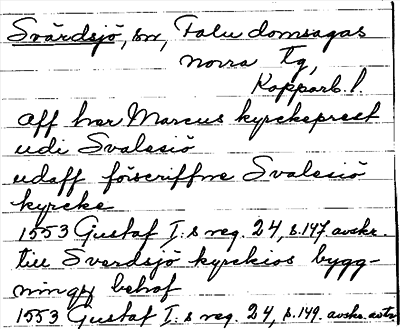 Svärdsjö, sn, Falu domsagas
norra tg,
Kopparb. l.
aff har Marcus kyrckeprest
udi Svalesiö
udaff förscriffne Svalesiö
kyrcke
1553 Gustaf I:s reg. 24, s.147 avskr.
till Sverdsjö kyrckios bygg-
ningz behof
1553 Gustaf I:s reg. 24, s.149. avskr. avtr.